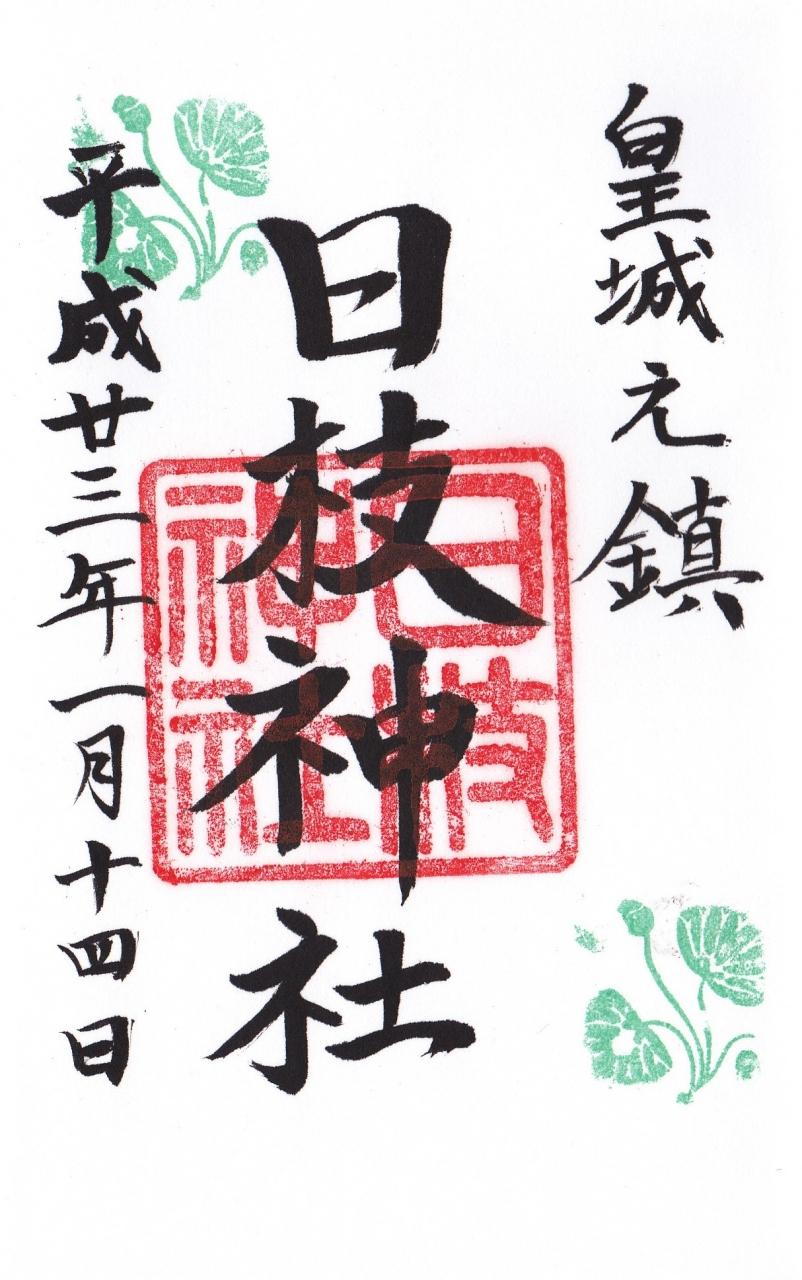 皇城之鎮
日枝神社
日枝
神社
平成廿三年一月十四日